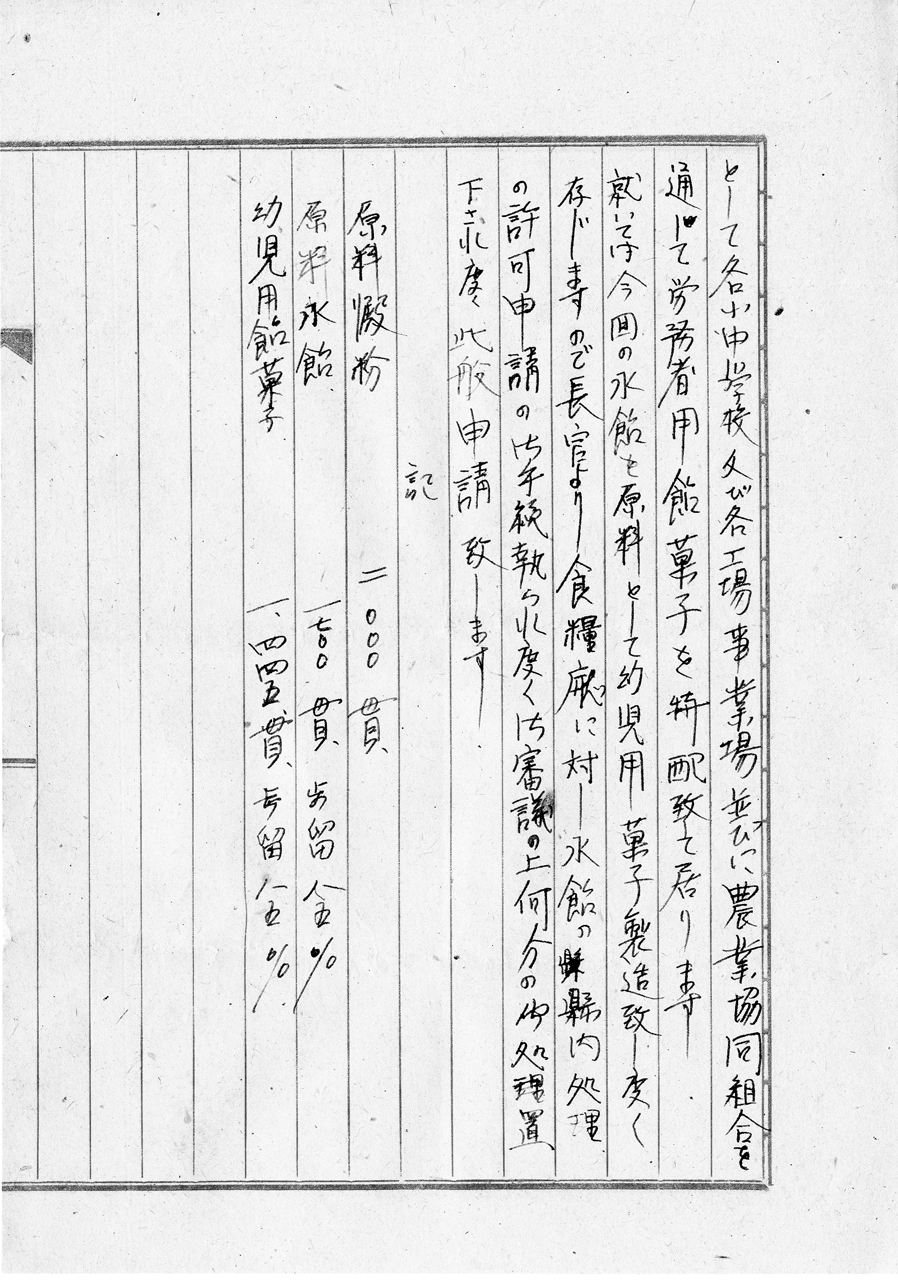 として各小中学校及び各工場事業場並びに農業協同組合を
通じて労務者用飴菓子を特配致て居ります
就いては今回の水飴を原料として幼児用菓子製造致し度く
存じますので長官より食糧廰に対し水飴の縣内処理
の許可申請の御手続執られ度く御審議の上何分の御処理置
下され度く此般申請致します
記
原料澱粉 二〇〇〇貫
原料水飴 一七〇〇貫 歩留 八五%
幼児用飴菓子 一、四四五貫 歩留 八五%